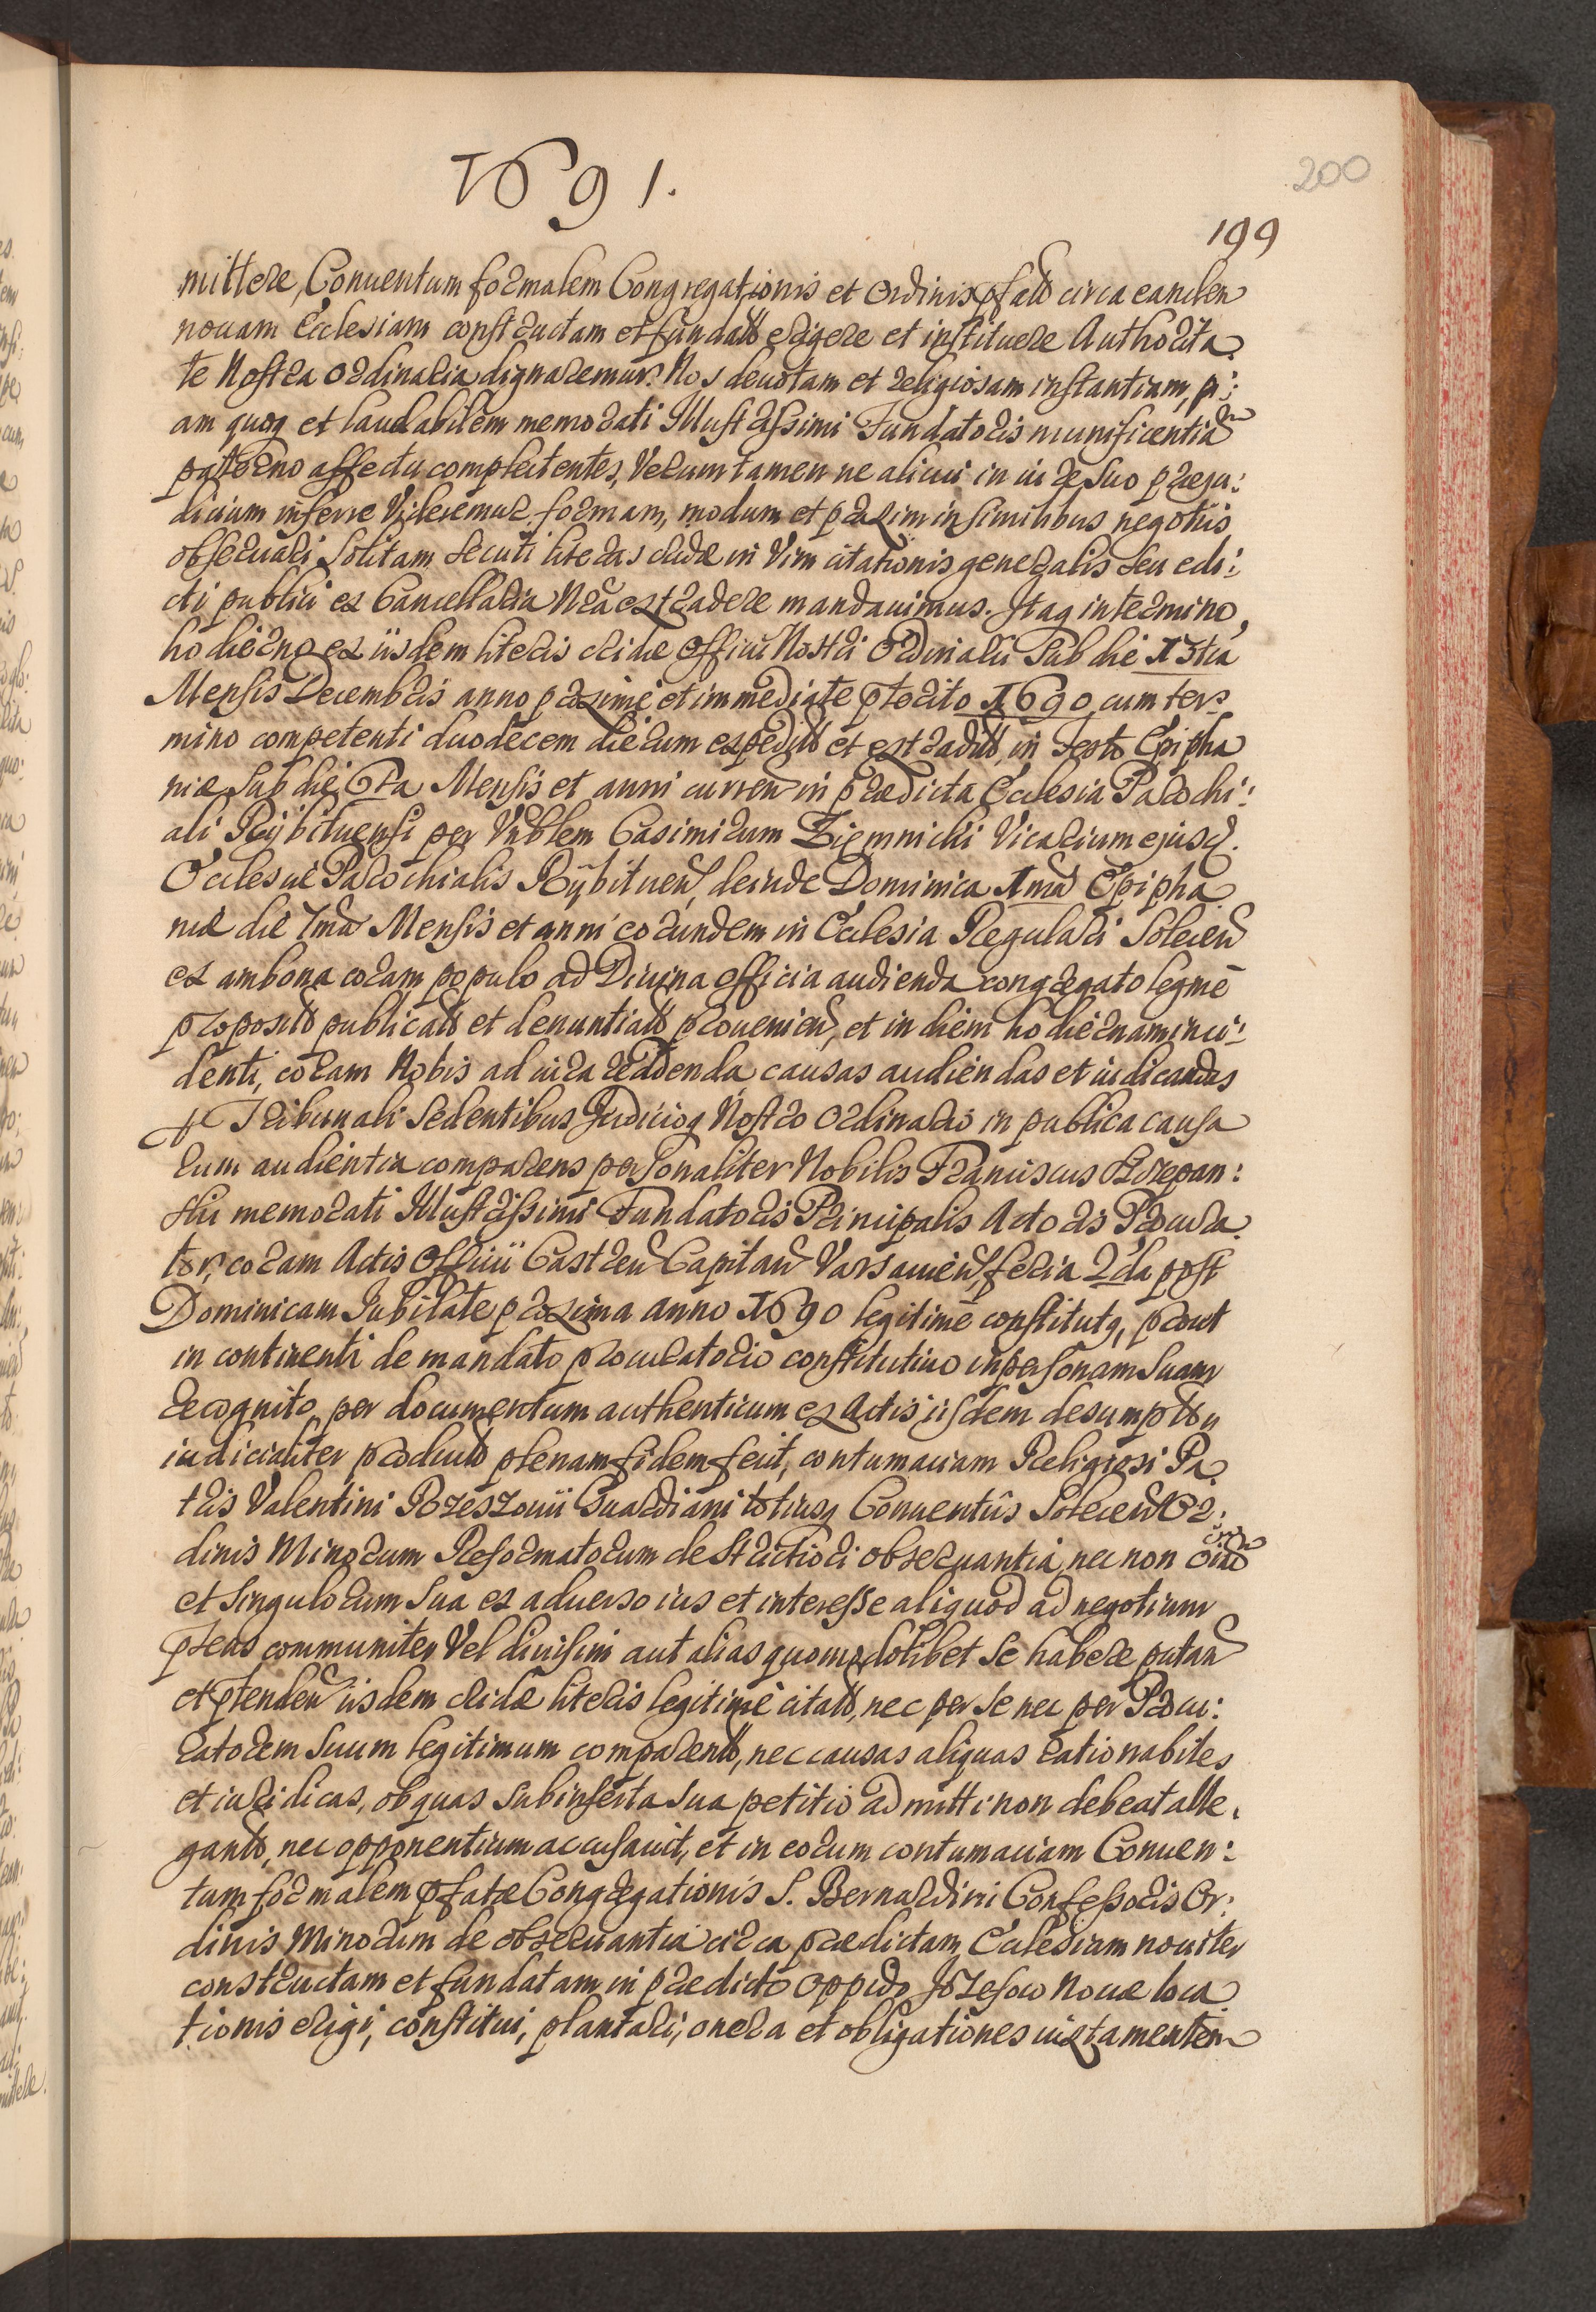 1691.
200
199
mittere, Conuentum formalem Congregationis et Ordinis pfatt circa eandem
nouam Ecclesiam constructam et fundatt erigere et instituere Authorita
te Nostra Ordinaria dignaremur. Nos deuotam et religiosam instantiam, pi:
am quoq et laudabilem memorati Illustrissimi Fundatoris munificentiam
paterno affectu complectentes, Verum tamen ne alicui in iure suo præju:
dicium inferre Videremur, formam, modum et praxim in similibus negotiis
obseruari solitam secuti literas cridæ in Vim citationis generalis seu edi:
cti publici ex Cancellaria Nra extradere mandauimus. Itaq in termino
hodierno ex iisdem literis cridæ Officii Nostri Ordinarii sub die 13tia
Mensis Decembris anno proxime et immediate pterito 1690 cum ter
mino competenti duodecem dierum expeditt et extraditt, in Festo Epipha
niæ sub die 6ta Mensis et anni curren in prædicta Ecclesia Parochi:
ali Rybituensi per Vnblem Casimirum Ziemnicki Vicarium ejusd.
Ecclesiæ Parochialis Rybituen, deinde Dominica 1ma Epipha
niæ die 7ma Mensis et anni eorundem in Ecclesia Regulari Solecen
ex ambona coram populo ad Diuina officia audienda congregato legme
propositt publicatt et denuntiatt prouenien, et in diem hodiernam inci:
denti, coram Nobis ad iura reddenda causas audiendas et iudicandas
p Tribunali Sedentibus Judicioq Nostro Ordinario in publica causa
rum audientia comparens personaliter Nobilis Franciscus Szczepan:
ski memorati Illustrissimi Fundatoris Principalis Actoris Procura
tor, coram Actis Officii Castren Capitan Varsauien feria 2da post
Dominicam Jubilate proxima anno 1690 legitime constitutq, prout
in continenti de mandato procuratorio constitutiuo in personam suam
recognito per documentum authenticum ex Actis iisdem desumptt n
iudicialiter productt plenam fidem fecit, contumaciam Religiosi Pa
tris Valentini Rzeszowii Guardiani totiusq Conuentûs Solecen Or:
dinis Minorum Reformatorum de Strictiori obseruantia, nec non oium
et singulorum sua ex aduerso ius et interesse aliquod ad negotium
ptens communiter Vel diuisim aut alias quomodolibet se habere putan
et ptenden iisdem cridæ literis legitime citatt, nec per se nec per Procu:
ratorem suum legitimum comparentt, nec causas aliquas rationabiles
et iuridicas, ob quas subinserta sua petitio admitti non debeat alle
gantt, nec opponentium accusauit, et in eorum contumaciam Conuen:
tum formalem pfatæ Congregationis S. Bernardini Confessoris Or:
dinis Minorum de obseruantia circa prædictam Ecclesiam nouiter
constructam et fundatam in prædicto oppido Jozefow nouæ loca
tionis erigi, constitui, plantari, onera et obligationes iuxta mentem